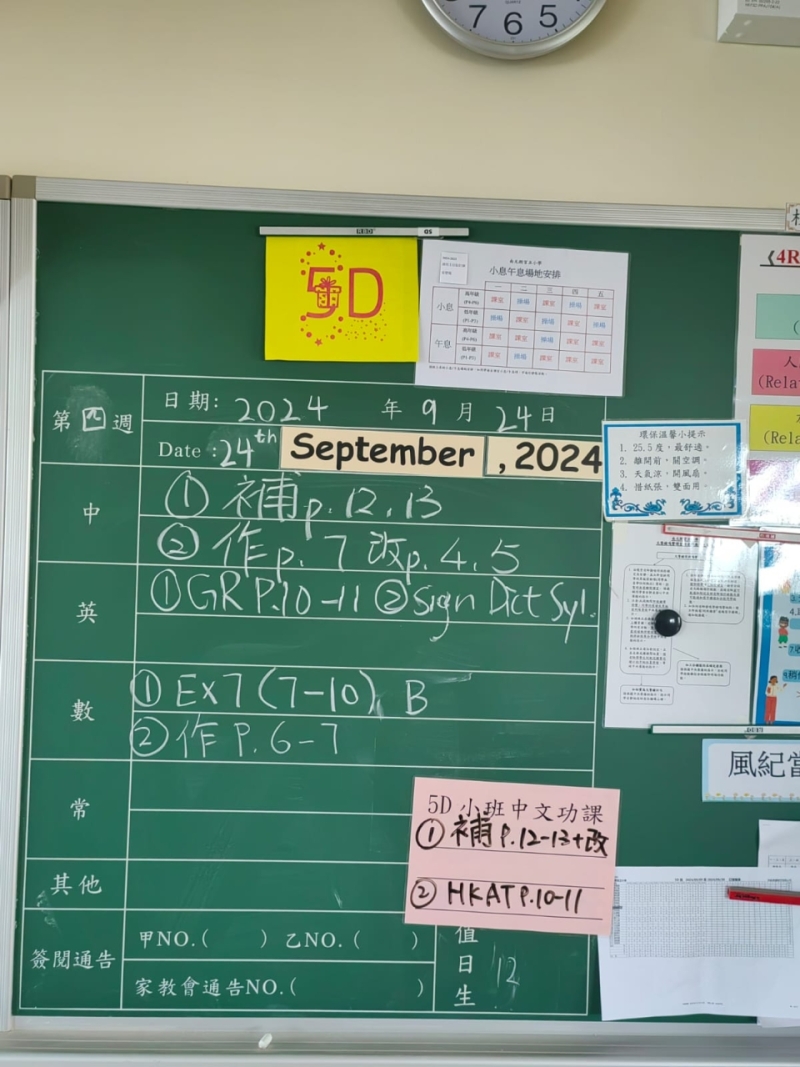 7 6 5
5D
小息午息場地安排
一 二 三 四 五
小息
高年級 課室 操場 課室 操場 課室
低年級 操場 課室 操場 課室 操場
午息
高年級 課室 課室 操場 課室 課室
低年級 課室 操場 課室 課室 課室
第四週
日期: 2024 年 9 月 24 日
Date : 24th September , 2024
中
① 補p. 12, 13
② 作p. 7 改p. 4, 5
英
① GR P.10-11 ② Sign Dict Syl.
數
① EX7 (7-10) B
② 作 P. 6-7
常
其他
簽閱通告
甲NO.( ) 乙NO.( )
家教會通告NO.( )
值日生 12
5D 小班中文功課
① 補 p.12-13+改
② HKAT P.10-11
環保溫馨小提示
1. 25.5 度，最舒適。
2. 離開前，關空調。
3. 天氣涼，開風扇。
4. 惜紙張，雙面用。
《4R
(Rela
(Re
風紀當